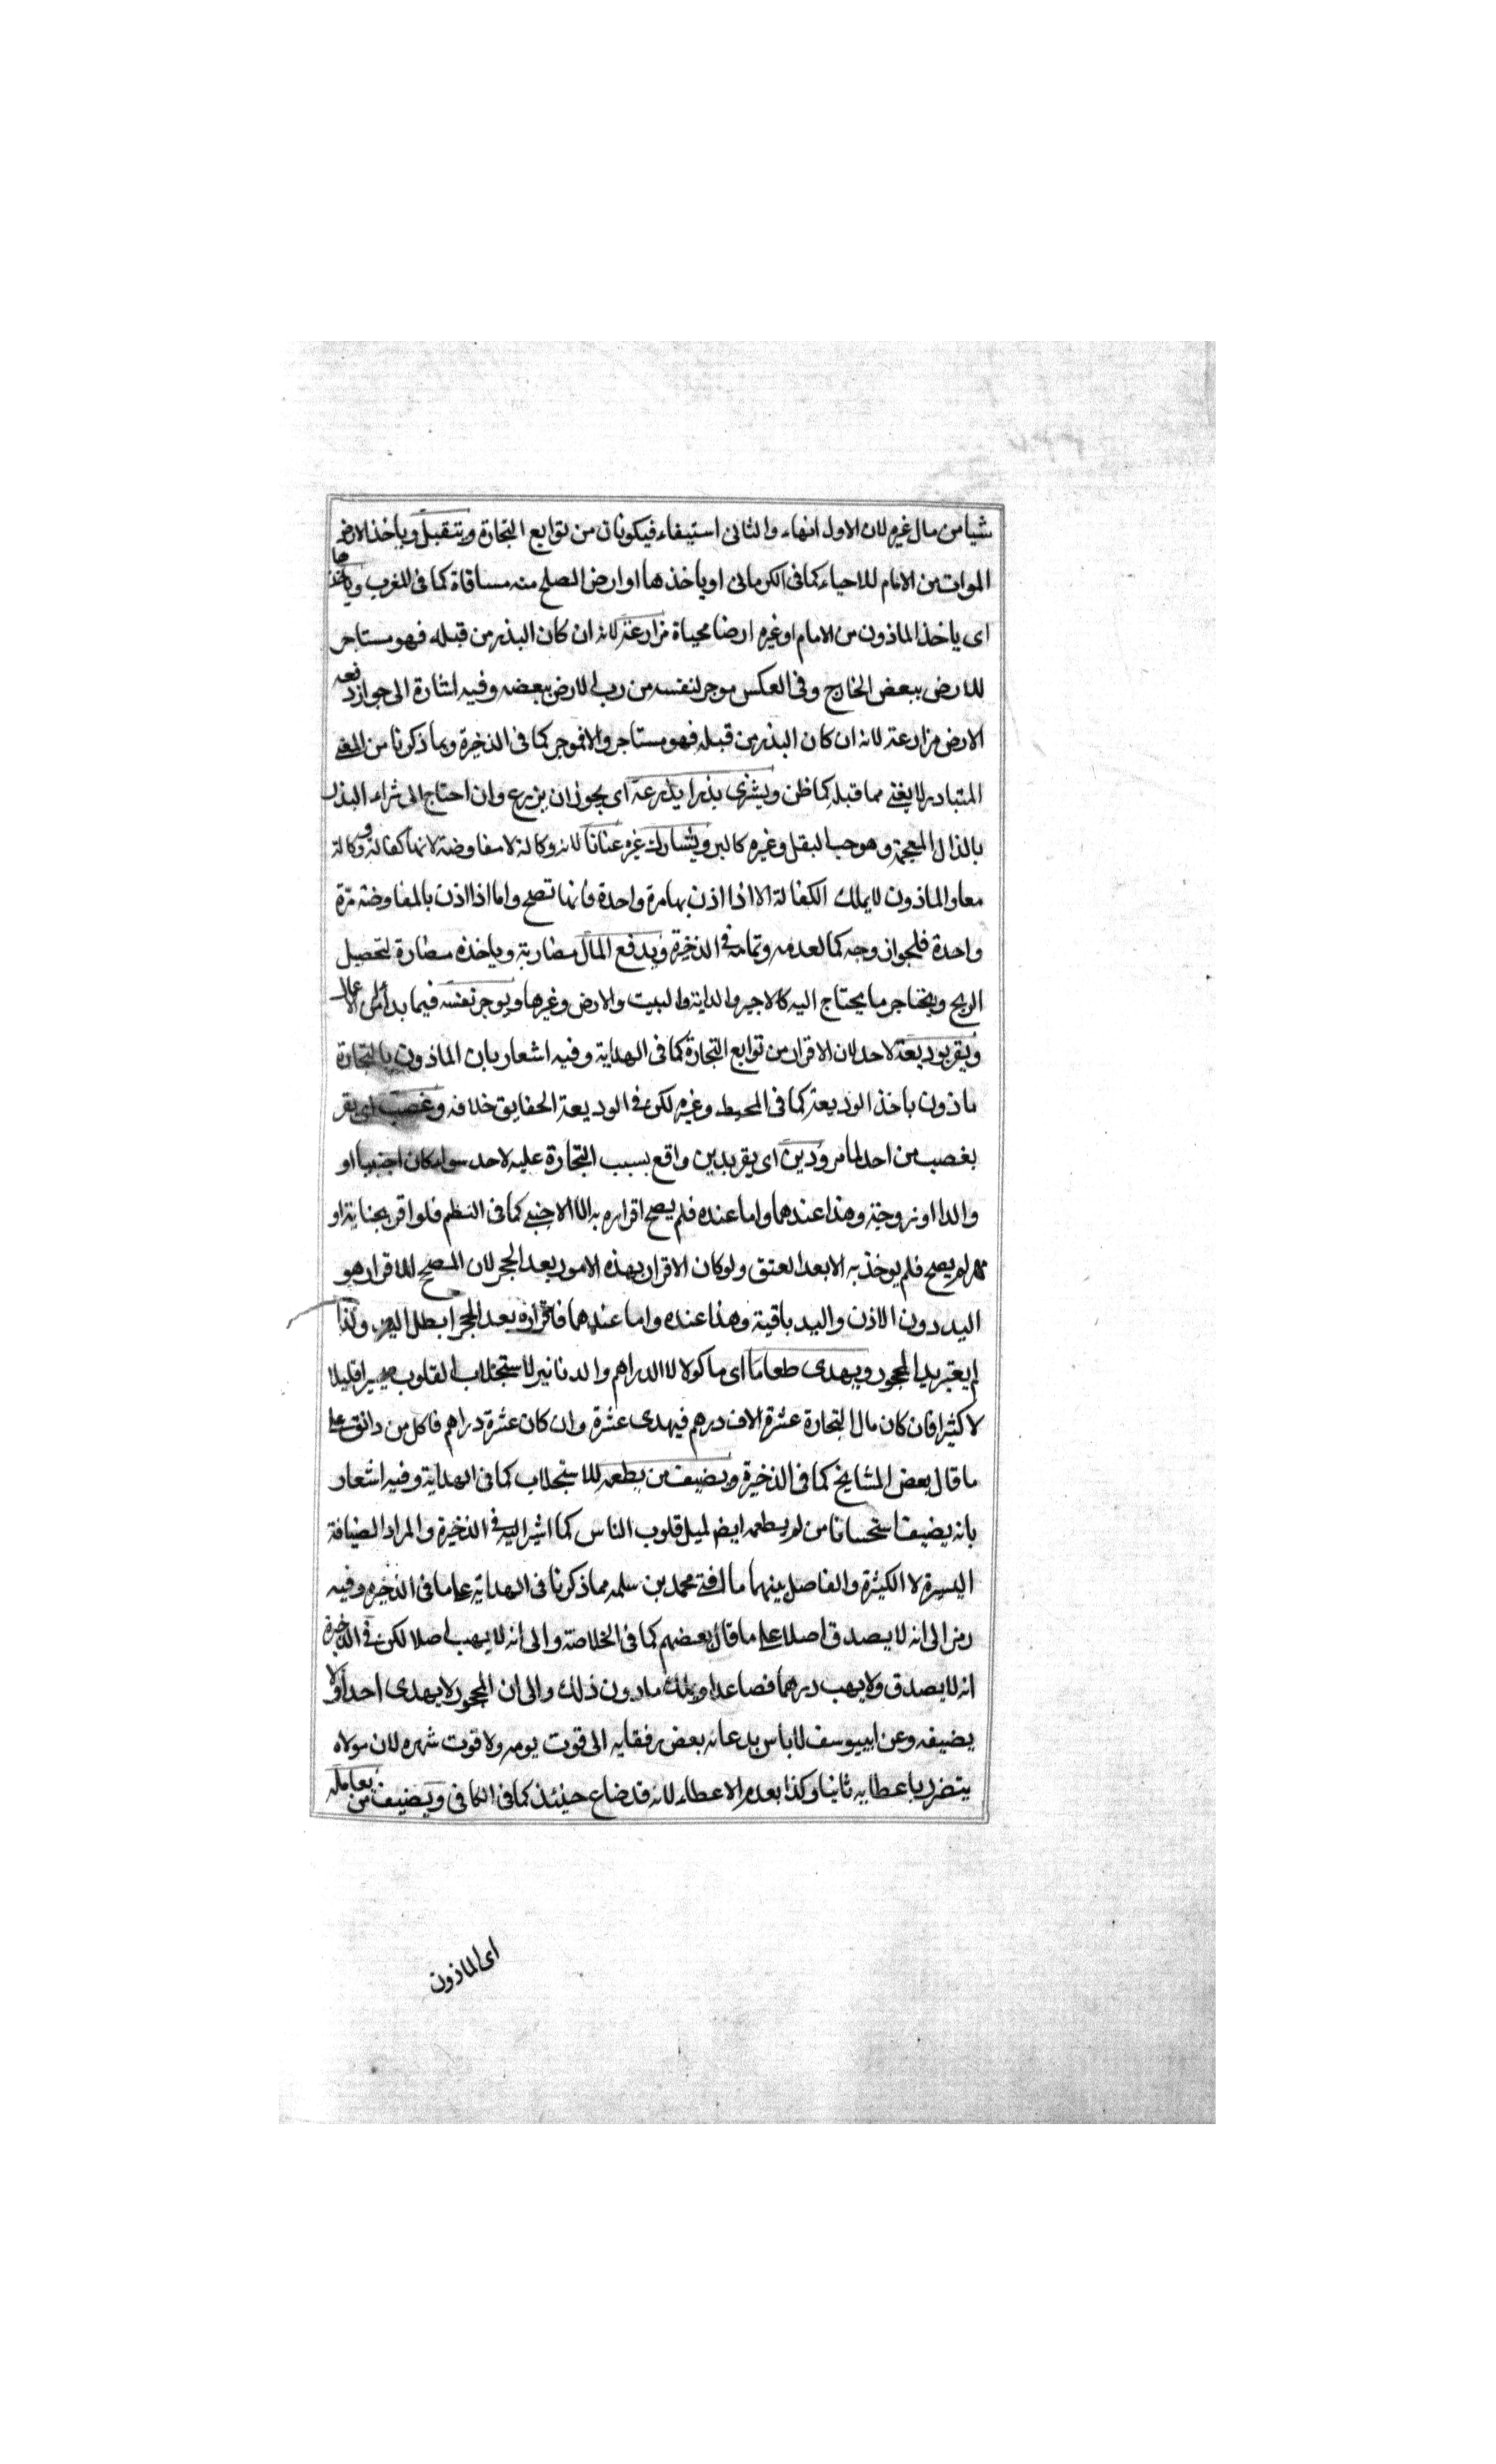 شيا من مال غيره لان الاول انهاء والثانى استيفاء فيكونان من توابع التجارة ويتقبل وياخذ الارض
الموات من الامام للاحياء كما فى الكرمانى او ياخذها او ارض الصلح منه مساقاة كما فى المغرب وياخذها
اى ياخذ الماذون من الامام او غيره ارضا محياة مزارعة لانه ان كان البذر من قبله فهو مستاجر
للارض ببعض الخارج وفى العكس موجر لنفسه من رب الارض ببعضه وفيه اشارة الى جواز دفعه
الارض مزارعة لانه ان كان البذر من قبله فهو مستاجر والا فموجر كما فى الذخيرة وبما ذكرنا من المعنى
المتبادر لا يغنى مما قبله كما ظن ويشترى بذرا يذرعه اى يجوز ان يزرع وان احتاج الى شراء البذر
بالذال المعجمة وهو حب البقل وغيره كالبر ويشارك غيره عنانا لانه وكالة لا مفاوضة لانها كفالة ووكالة
معا والماذون لا يملك الكفالة الا اذا اذن بها مرة واحدة فانها تصح واما اذا اذن بالمفاوضة مرة
واحدة فلجواز وجه كما لعدمه وتمامه فى الذخيرة ويدفع المال مضاربة وياخذه مضاربة لتحصيل
الربح ويستاجر ما يحتاج اليه كالاجير والدابة والبيت والارض وغيرها ويوجر نفسه فيما بدا له من الاعمال
ويقر بوديعة لاحد لان الاقرار من توابع التجارة كما فى الهداية وفيه اشعار بان الماذون بالتجارة
ماذون باخذ الوديعة كما فى المحيط وغيره لكن فى الوديعة الحقايق خلافه وغصب اى يقر
بغصب من احد لما مر ودين اى يقر بدين واقع بسبب التجارة عليه لاحد سواء كان اجنبيا او
والدا او زوجة وهذا عندهما واما عنده فلم يصح اقراره به الا لاجنبى كما فى النظم فلو اقر بجناية او
مهر لم يصح فلم يوخذ به الا بعد العتق ولو كان الاقرار بهذه الامور بعد الحجر لان المصحح للاقرار هو
اليد دون الاذن واليد باقية وهذا عنده واما عندهما فاقراره بعد الحجر ابطل اليد ولذا
لم يعتبر يد المحجور ويهدى طعاما اى ماكولا لا الدراهم والدنانير لاستجلاب القلوب يسيرا قليلا
لا كثيرا فان كان مال التجارة عشرة الاف درهم فيهدى عشرة وان كان عشرة دراهم فاكل من دانق على
ما قال بعض المشايخ كما فى الذخيرة ويضيف من يطعمه للاستجلاب كما فى الهداية وفيه اشعار
بانه يضيف استحسانا من لم يطعمه ايضا لميل قلوب الناس كما اشير اليه فى الذخيرة والمراد الضيافة
اليسيرة لا الكثيرة والفاصل بينهما ما افتى محمد بن سلمة مما ذكرنا فى الهداية على ما فى الذخيرة وفيه
رمز الى انه لا يصدق اصلا على ما قال بعضهم كما فى الخلاصة والى انه لا يهب اصلا لكن فى الذخيرة
انه لا يصدق ولا يهب درهما فصاعدا ويملك ما دون ذلك والى ان المحجور لا يهدى احدا ولا
يضيفه وعن ابى يوسف لا باس بدعائه بعض رفقايه الى قوت يومه ولا قوت شهره لان مولاه
يتضرر باعطايه ثانيا وكذا بعدم الاعطاء لانه قد ضاع حينئذ كما فى الكافى ويضيف من يعامله
اى الماذون